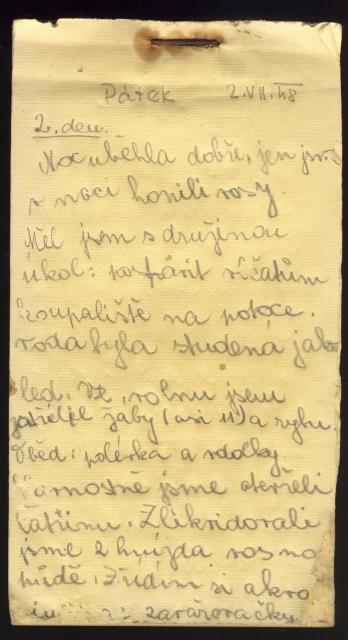 Pátek 2.VII.48
2. den.
Noc uběhla dobře, jen jsme
v noci honili vosy.
Měl jsem s družinou
úkol: postavit vlčatům
koupaliště na potoce.
voda byla studená jako
led. V volnu jsem
žáby (asi 11) a rybu.
Oběd: polévka a vdolky.
jsme otevřeli
. Zlikvidovali
jsme 2 hnízda vos na
půdě. si a kro
zavařovačky